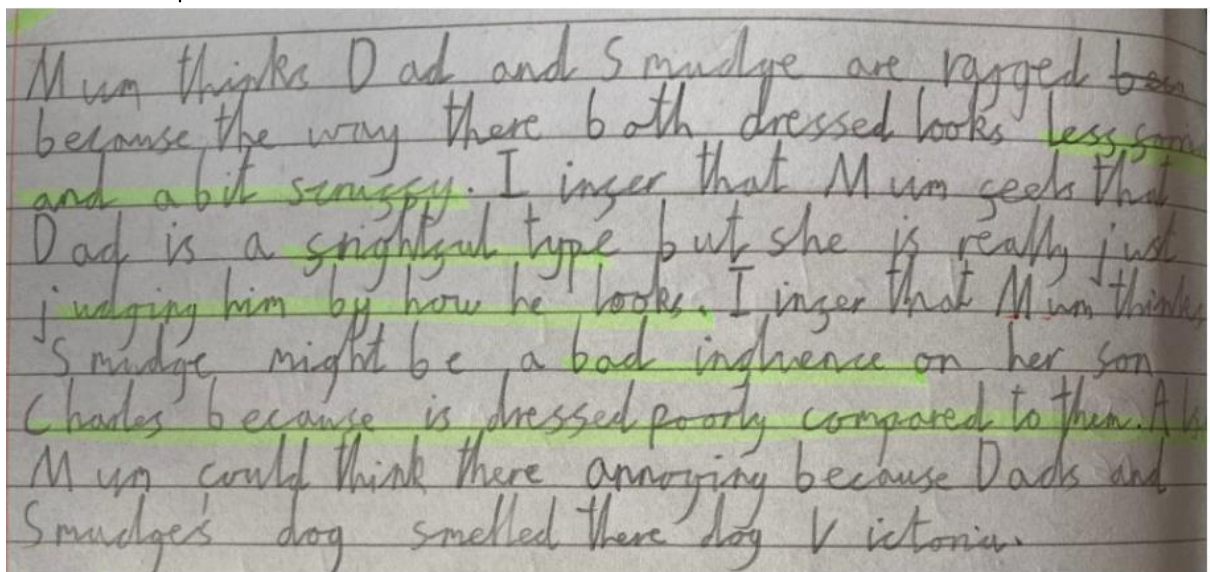 Mum thinks Dad and Smudge are ragged
because, the way there both dressed looks less
and a bit scruffy. I infer that Mum feels that
Dad is a frightful type but she is really just
judging him by how he looks. I infer that Mum thinks
Smudge might be a bad influence on her son
Charles because is dressed poorly compared to them.
Mum could think there annoying because Dads and
Smudge's dog smelled there dog Victoria.